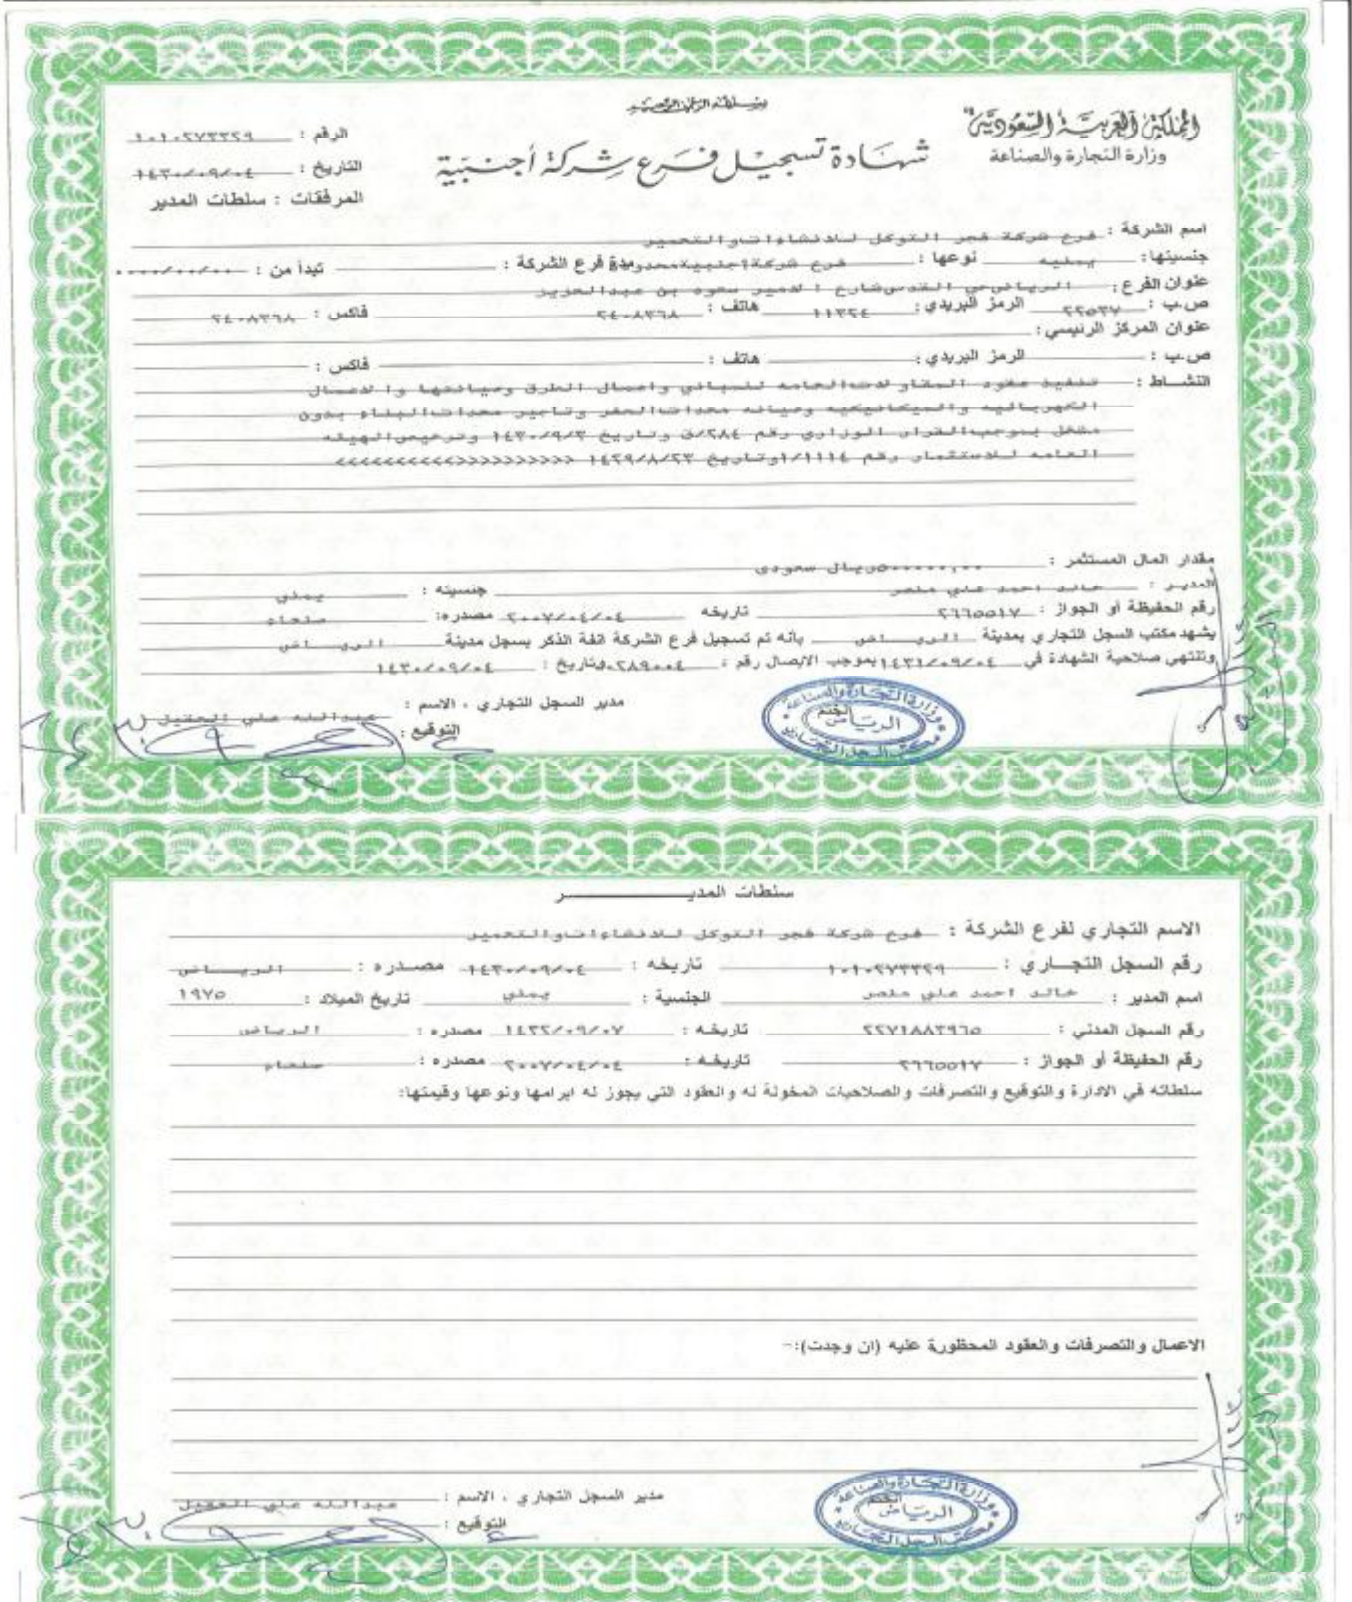 بسم الله الرحمن الرحيم
المملكة العربية السعودية
وزارة التجارة والصناعة
شهادة تسجيل فرع شركة أجنبية
الرقم : ١٠١٠٢٧٣٣٢٩
التاريخ : ١٤٣٠/٠٩/٠٤
المرفقات : سلطات المدير
اسم الشركة : فرع شركة فجر التوكل للانشاءات والتعمير
جنسيتها : يمنيه نوعها : فرع شركة اجنبية محدودة مدة فرع الشركة : تبدأ من : ٠٠٠٠/٠٠/٠٠
عنوان الفرع : الرياض حي القدس شارع الامير سعود بن عبدالعزيز
ص.ب : ٢٢٥٣٧ الرمز البريدي : ١١٣٢٤ هاتف : ٢٤٠٨٣٦٨ فاكس : ٢٤٠٨٣٦٨
عنوان المركز الرئيسي :
ص.ب : الرمز البريدي : هاتف : فاكس :
النشاط : تنفيذ عقود المقاولات العامه للمباني واعمال الطرق وصيانتها والاعمال
الكهربائيه والميكانيكيه وصيانه معدات الحفر وتاجير معدات البناء بدون
مشغل بموجب القرار الوزاري رقم ٢٨٤/ق وتاريخ ١٤٣٠/٩/٣ وترخيص الهيئه
العامه للاستثمار رقم ١/١١١٤ وتاريخ ١٤٢٩/٨/٢٣
مقدار المال المستثمر : ٥٠٠٠٠٠,٠٠ ريال سعودى
المدير : خالد احمد علي منصر جنسيته : يمني
رقم الحفيظة أو الجواز : ٢٦٦٥٥١٧ تاريخه ٢٠٠٧/٠٤/٠٤ مصدره: صنعاء
يشهد مكتب السجل التجاري بمدينة الريـــاض بأنه تم تسجيل فرع الشركة انفة الذكر بسجل مدينة الريـــاض
وتنتهي صلاحية الشهادة في ١٤٣١/٠٩/٠٤ بموجب الايصال رقم : ٢٨٩٠٠٤ وتاريخ : ١٤٣٠/٠٩/٠٤
مدير السجل التجاري ، الاسم : عبدالله علي العقيل
التوقيع :
وزارة التجارة والصناعة
الختم
الرياض
مكتب السجل التجاري
سلطات المديـــــر
الاسم التجاري لفرع الشركة : فرع شركة فجر التوكل للانشاءات والتعمير
رقم السجل التجــاري : ١٠١٠٢٧٣٣٢٩ تاريخه : ١٤٣٠/٠٩/٠٤ مصـدره : الريـــاض
اسم المدير : خالد احمد علي منصر الجنسية : يمني تاريخ الميلاد : ١٩٧٥
رقم السجل المدني : ٢٢٧١٨٨٣٩٦٥ تاريخه : ١٤٣٢/٠٩/٠٧ مصدره : الرياض
رقم الحفيظة أو الجواز : ٢٦٦٥٥١٧ تاريخه : ٢٠٠٧/٠٤/٠٤ مصدره : صنعاء
سلطاته في الادارة والتوقيع والتصرفات والصلاحيات المخولة له والعقود التي يجوز له ابرامها ونوعها وقيمتها:
الاعمال والتصرفات والعقود المحظورة عليه (ان وجدت):-
مدير السجل التجاري ، الاسم : عبدالله علي العقيل
التوقيع :
وزارة التجارة والصناعة
الختم
الرياض
مكتب السجل التجاري